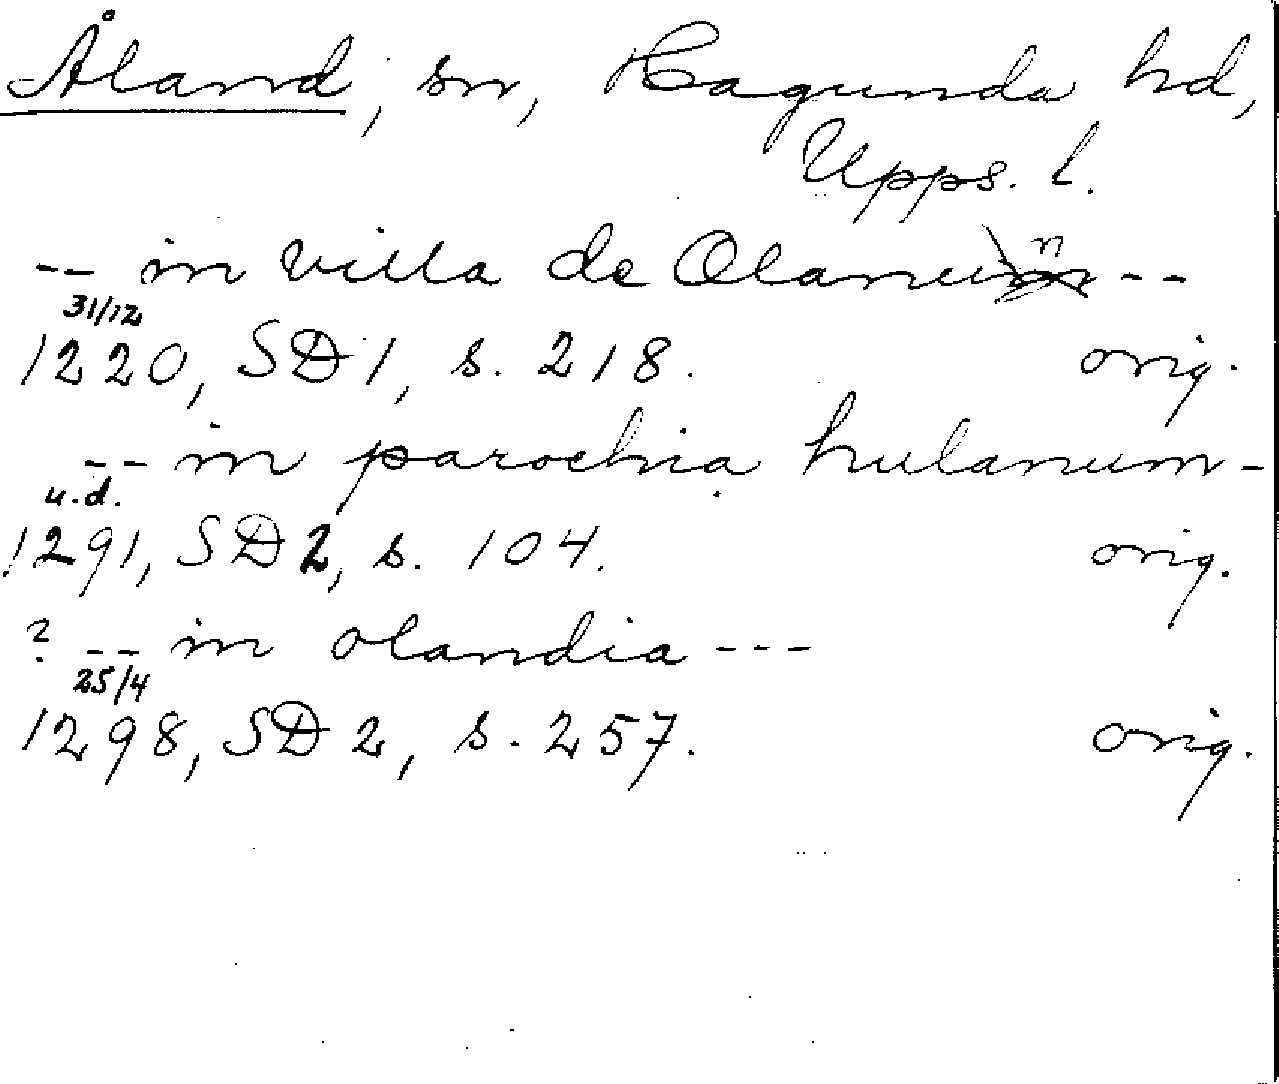 Åland, sn, Hagunda hd,
Upps. l.
-- in villa de Olaneun --
31/12
1220, SD 1, s. 218. orig.
-- in parochia hulanum -
u.d.
1291, SD 2, s. 104. orig.
? -- in olandia ---
25/4
1298, SD 2, s. 257. orig.